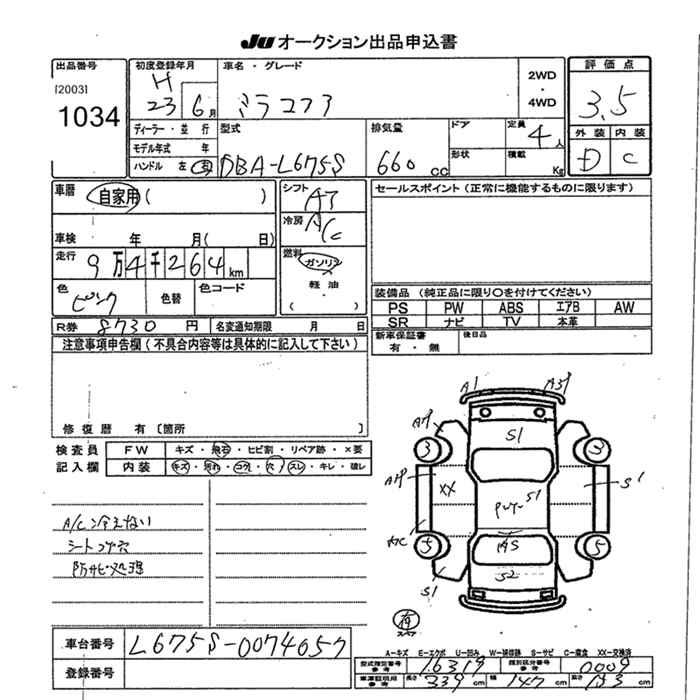 JU オークション出品申込書
出品番号
[2003]
1034
初度登録年月
H
23 6月
ディーラー・並行
モデル年式 年
ハンドル 左 右
車名・グレード
ミラココア
2WD
・
4WD
型式
DBA-L675S
排気量
660 cc
ドア
形状
定員
4人
積載
Kg
評価点
3.5
外装 内装
D C
車歴
自家用 ( )
車検 年 月( 日)
走行
9万4千264km
色
ピンク
色替
色コード
シフト
AT
冷房
A/C
燃料
ガソリン
軽油
( )
セールスポイント(正常に機能するものに限ります)
装備品 (純正品に限り○を付けてください)
PS PW ABS エアB AW
SR ナビ TV 本革
新車保証書
有・無
後日品
R券 8730円
名変通知期限 月 日
注意事項申告欄(不具合内容等は具体的に記入して下さい)
修復歴 有〔箇所 〕
検査員
記入欄
FW キズ・飛石・ヒビ割・リペア跡・×要
内装 キズ・汚れ・コゲ・穴・スレ・キレ・破レ
A/C冷えない
シートコゲ穴
防サビ処理
A1
S1
3
3
XX
S1
S1
AS
S2
S1
5
5
有
スペア
車台番号
L675S-0074057
登録番号
A-キズ E-エクボ U-凹み W-補修跡 S-サビ C-腐食 XX-交換済
型式指定番号
参考
16319
類別区分番号
参考
0009
車庫証明用
参考
長さ 339cm 幅 147cm 高さ cm